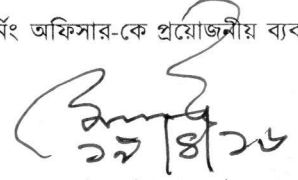 অফিসার-কে প্রয়োজনীয়
১৯/৪/১৬